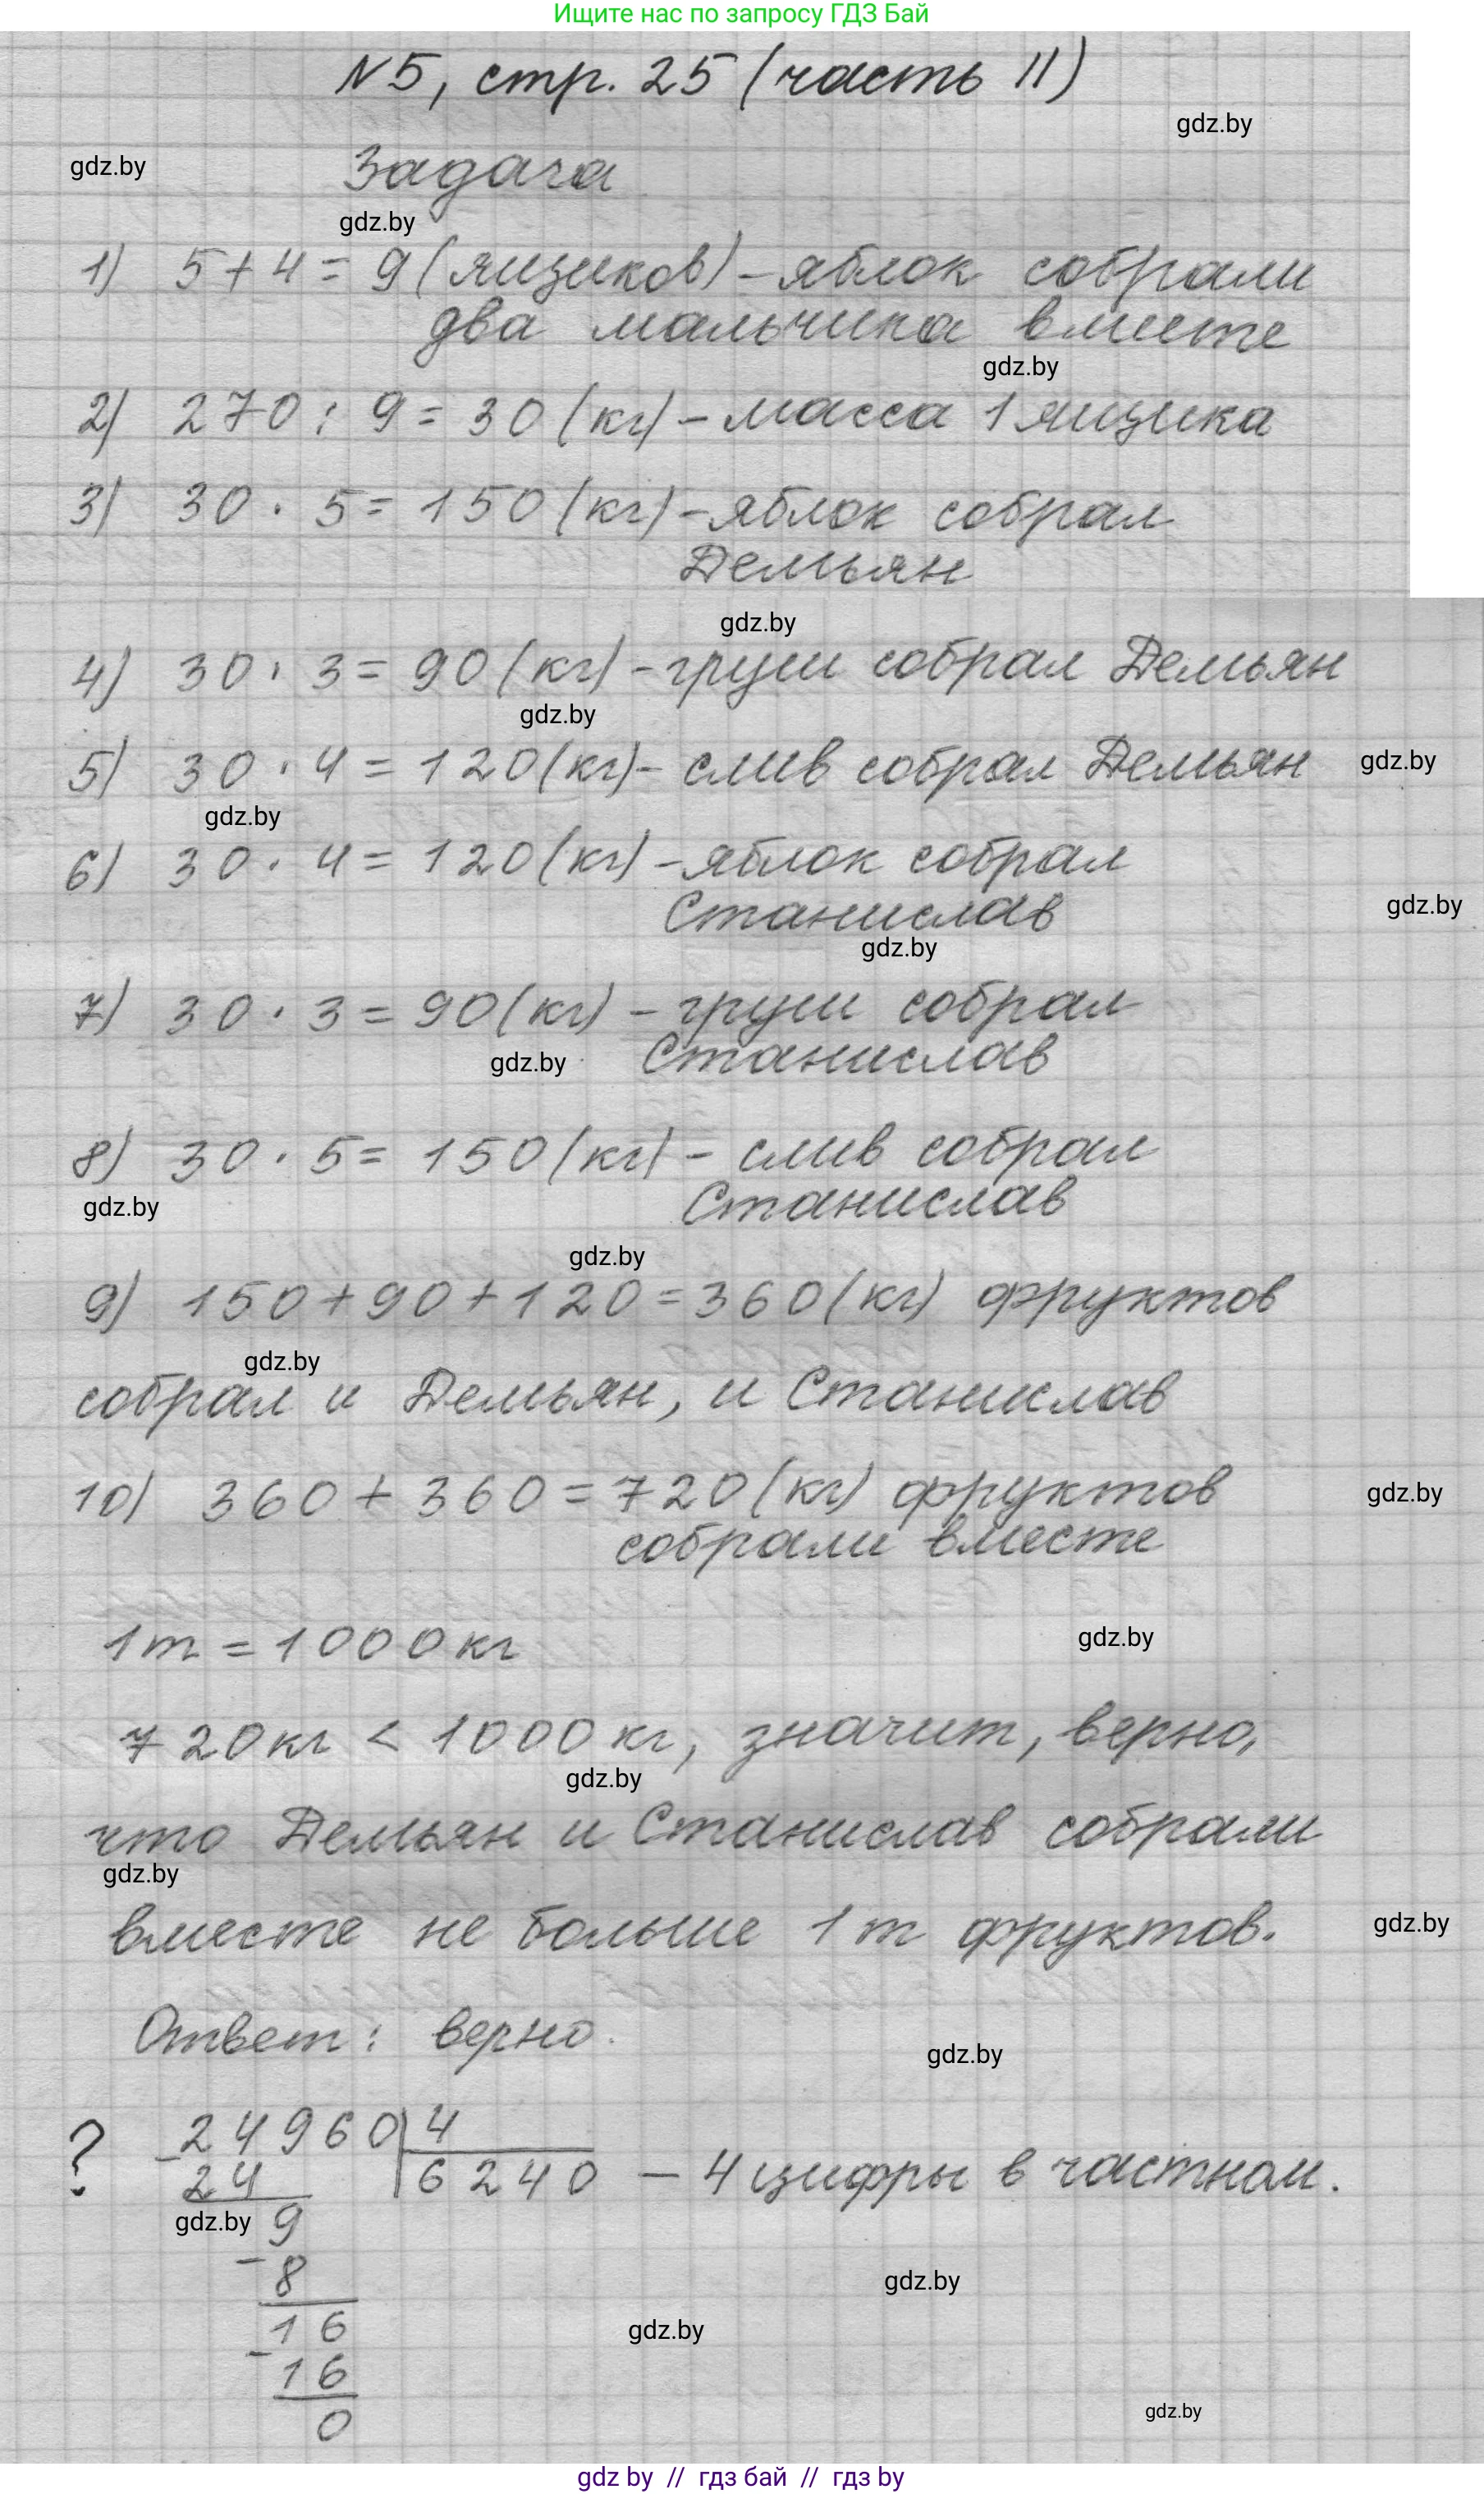 Ищите нас по запросу ГДЗ Бай
N5, стр. 25 (часть II)
gdz.by
gdz.by
Задача
gdz.by
1) 5+4=9(ящиков)-яблок собрали
два мальчика вместе
gdz.by
2) 270:9=30(кг)-масса 1 ящика
3) 30·5=150(кг)-яблок собрал
Демьян
gdz.by
4) 30·3=90(кг)-груш собрал Демьян
gdz.by
5) 30·4=120(кг)-слив собрал Демьян
gdz.by
gdz.by
6) 30·4=120(кг)-яблок собрал
Станислав
gdz.by
gdz.by
7) 30·3=90(кг)-груш собрал
Станислав
gdz.by
8) 30·5=150(кг)-слив собрал
Станислав
gdz.by
gdz.by
9) 150+90+120=360(кг) фруктов
gdz.by
собрал и Демьян, и Станислав
10) 360+360=720(кг) фруктов
собрали вместе
gdz.by
1т=1000кг
gdz.by
720кг<1000кг, значит, верно,
gdz.by
что Демьян и Станислав собрали
gdz.by
вместе не больше 1т фруктов.
gdz.by
Ответ: верно.
gdz.by
? 24960 4
24 6240 - 4 цифры в частном.
gdz.by 9
8
gdz.by
16
gdz.by
16
0
gdz.by
gdz by // гдз бай // гдз by